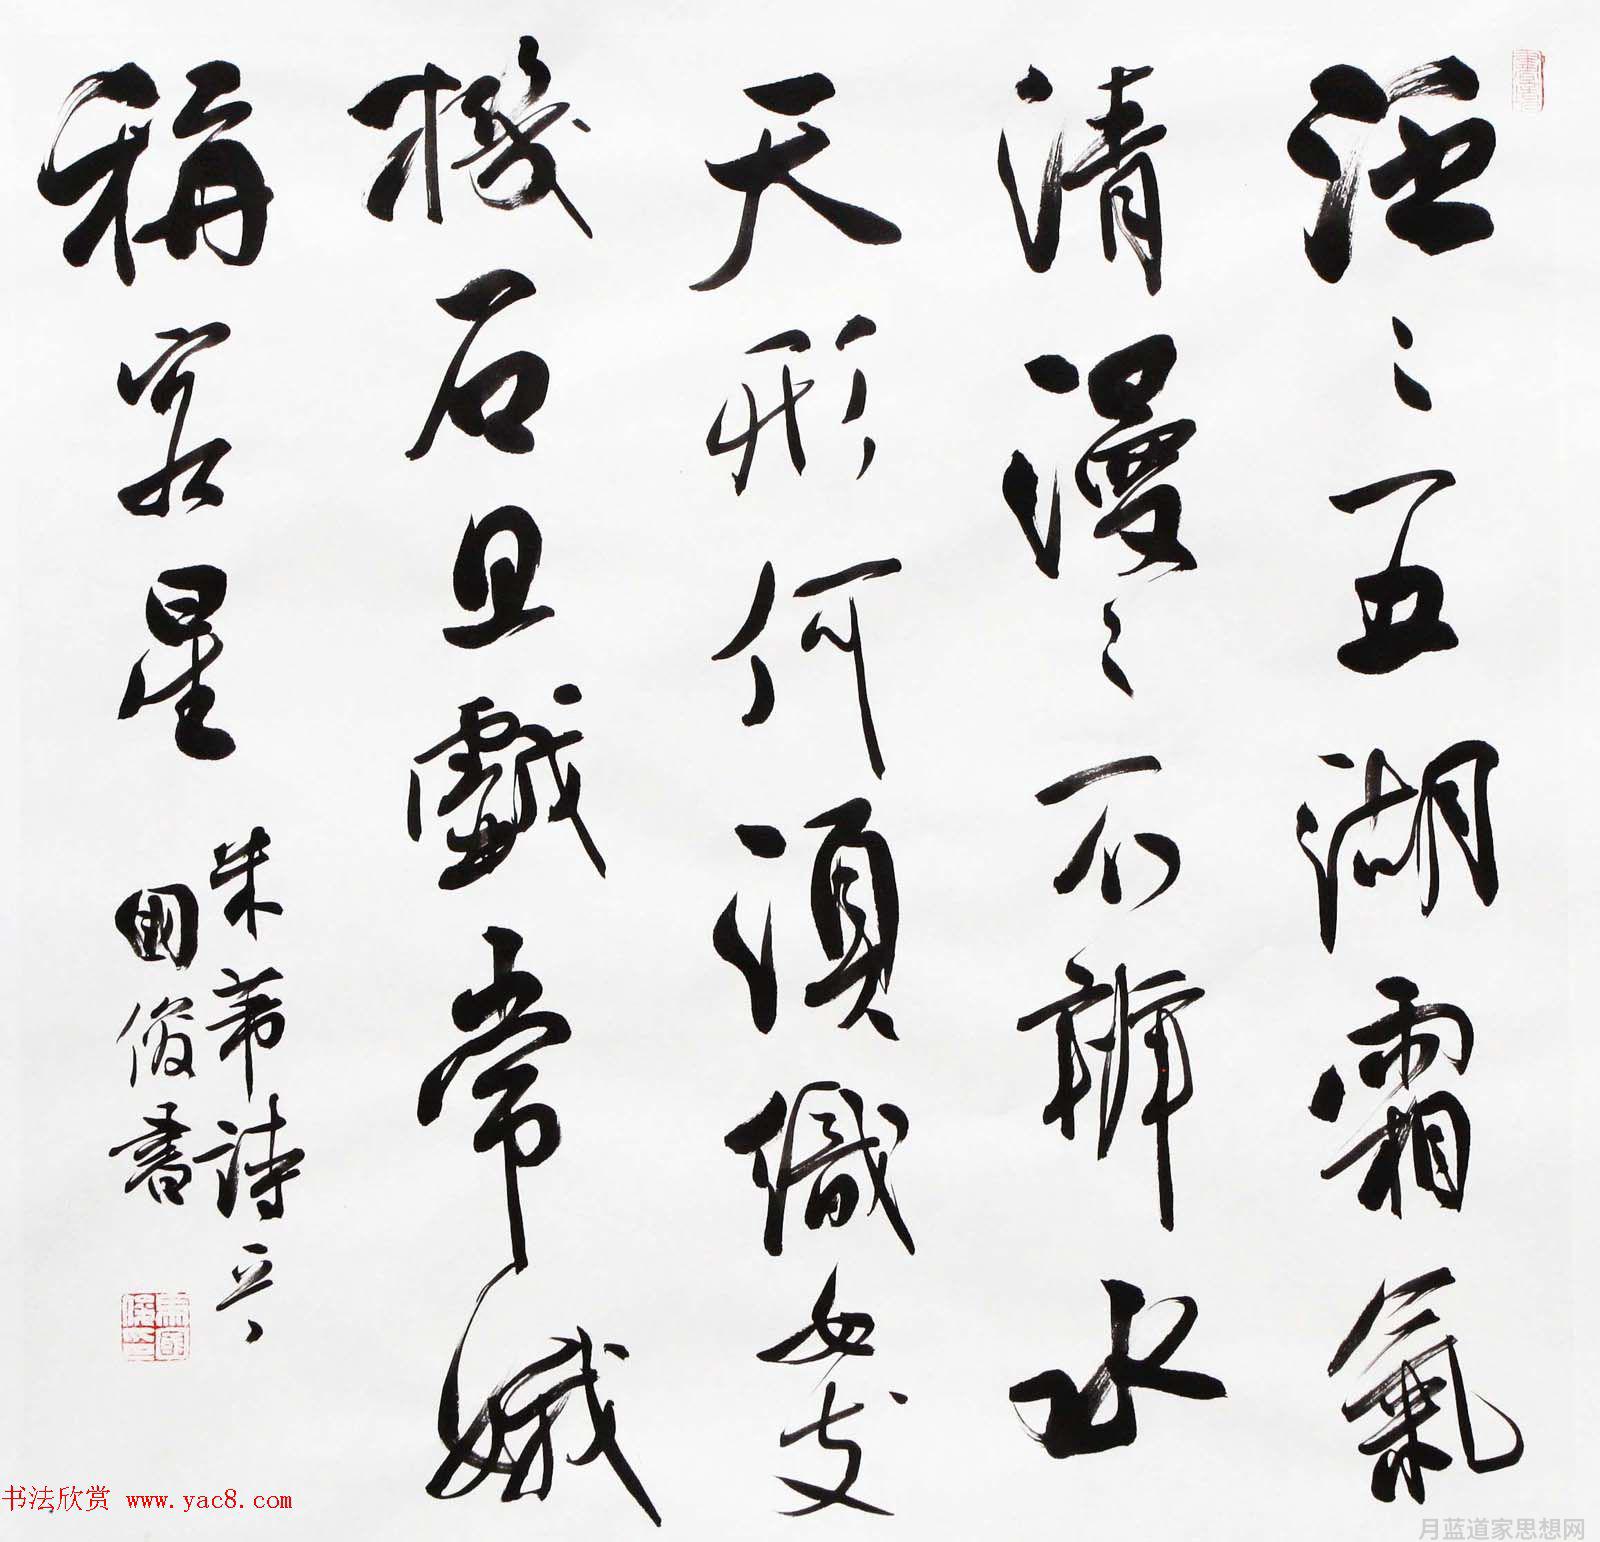 泛々五湖霜氣
清漫々不辨水
天形何須織女支
機石且戲常娥
稱客星
米芾詩
國俊書
书法欣赏 www.yac8.com
月蓝道家思想网